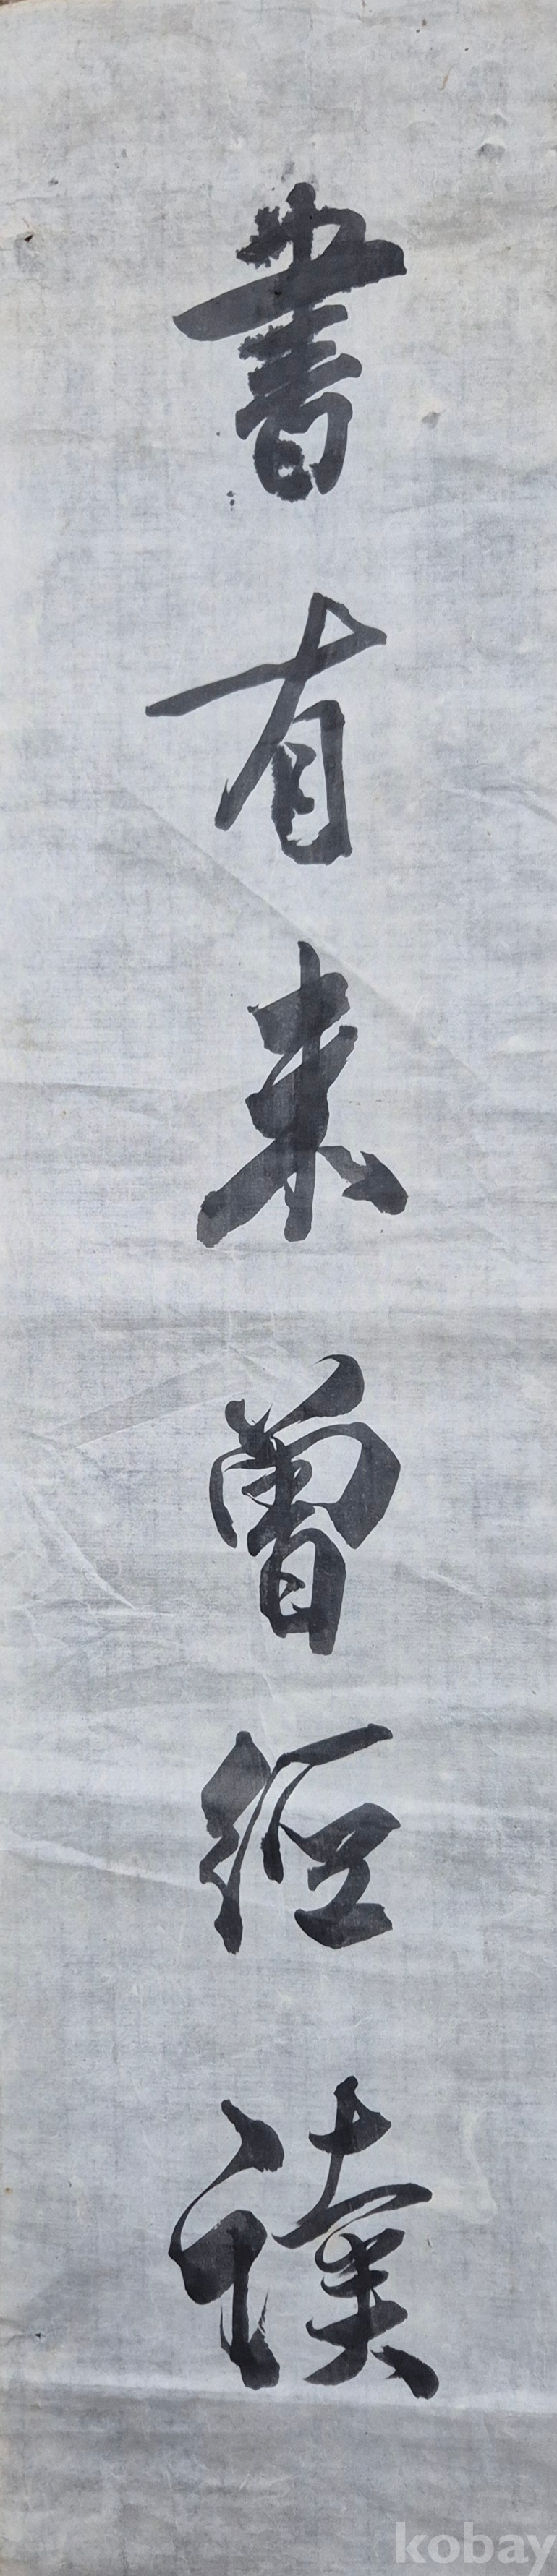 書有未曾經讀
kobay